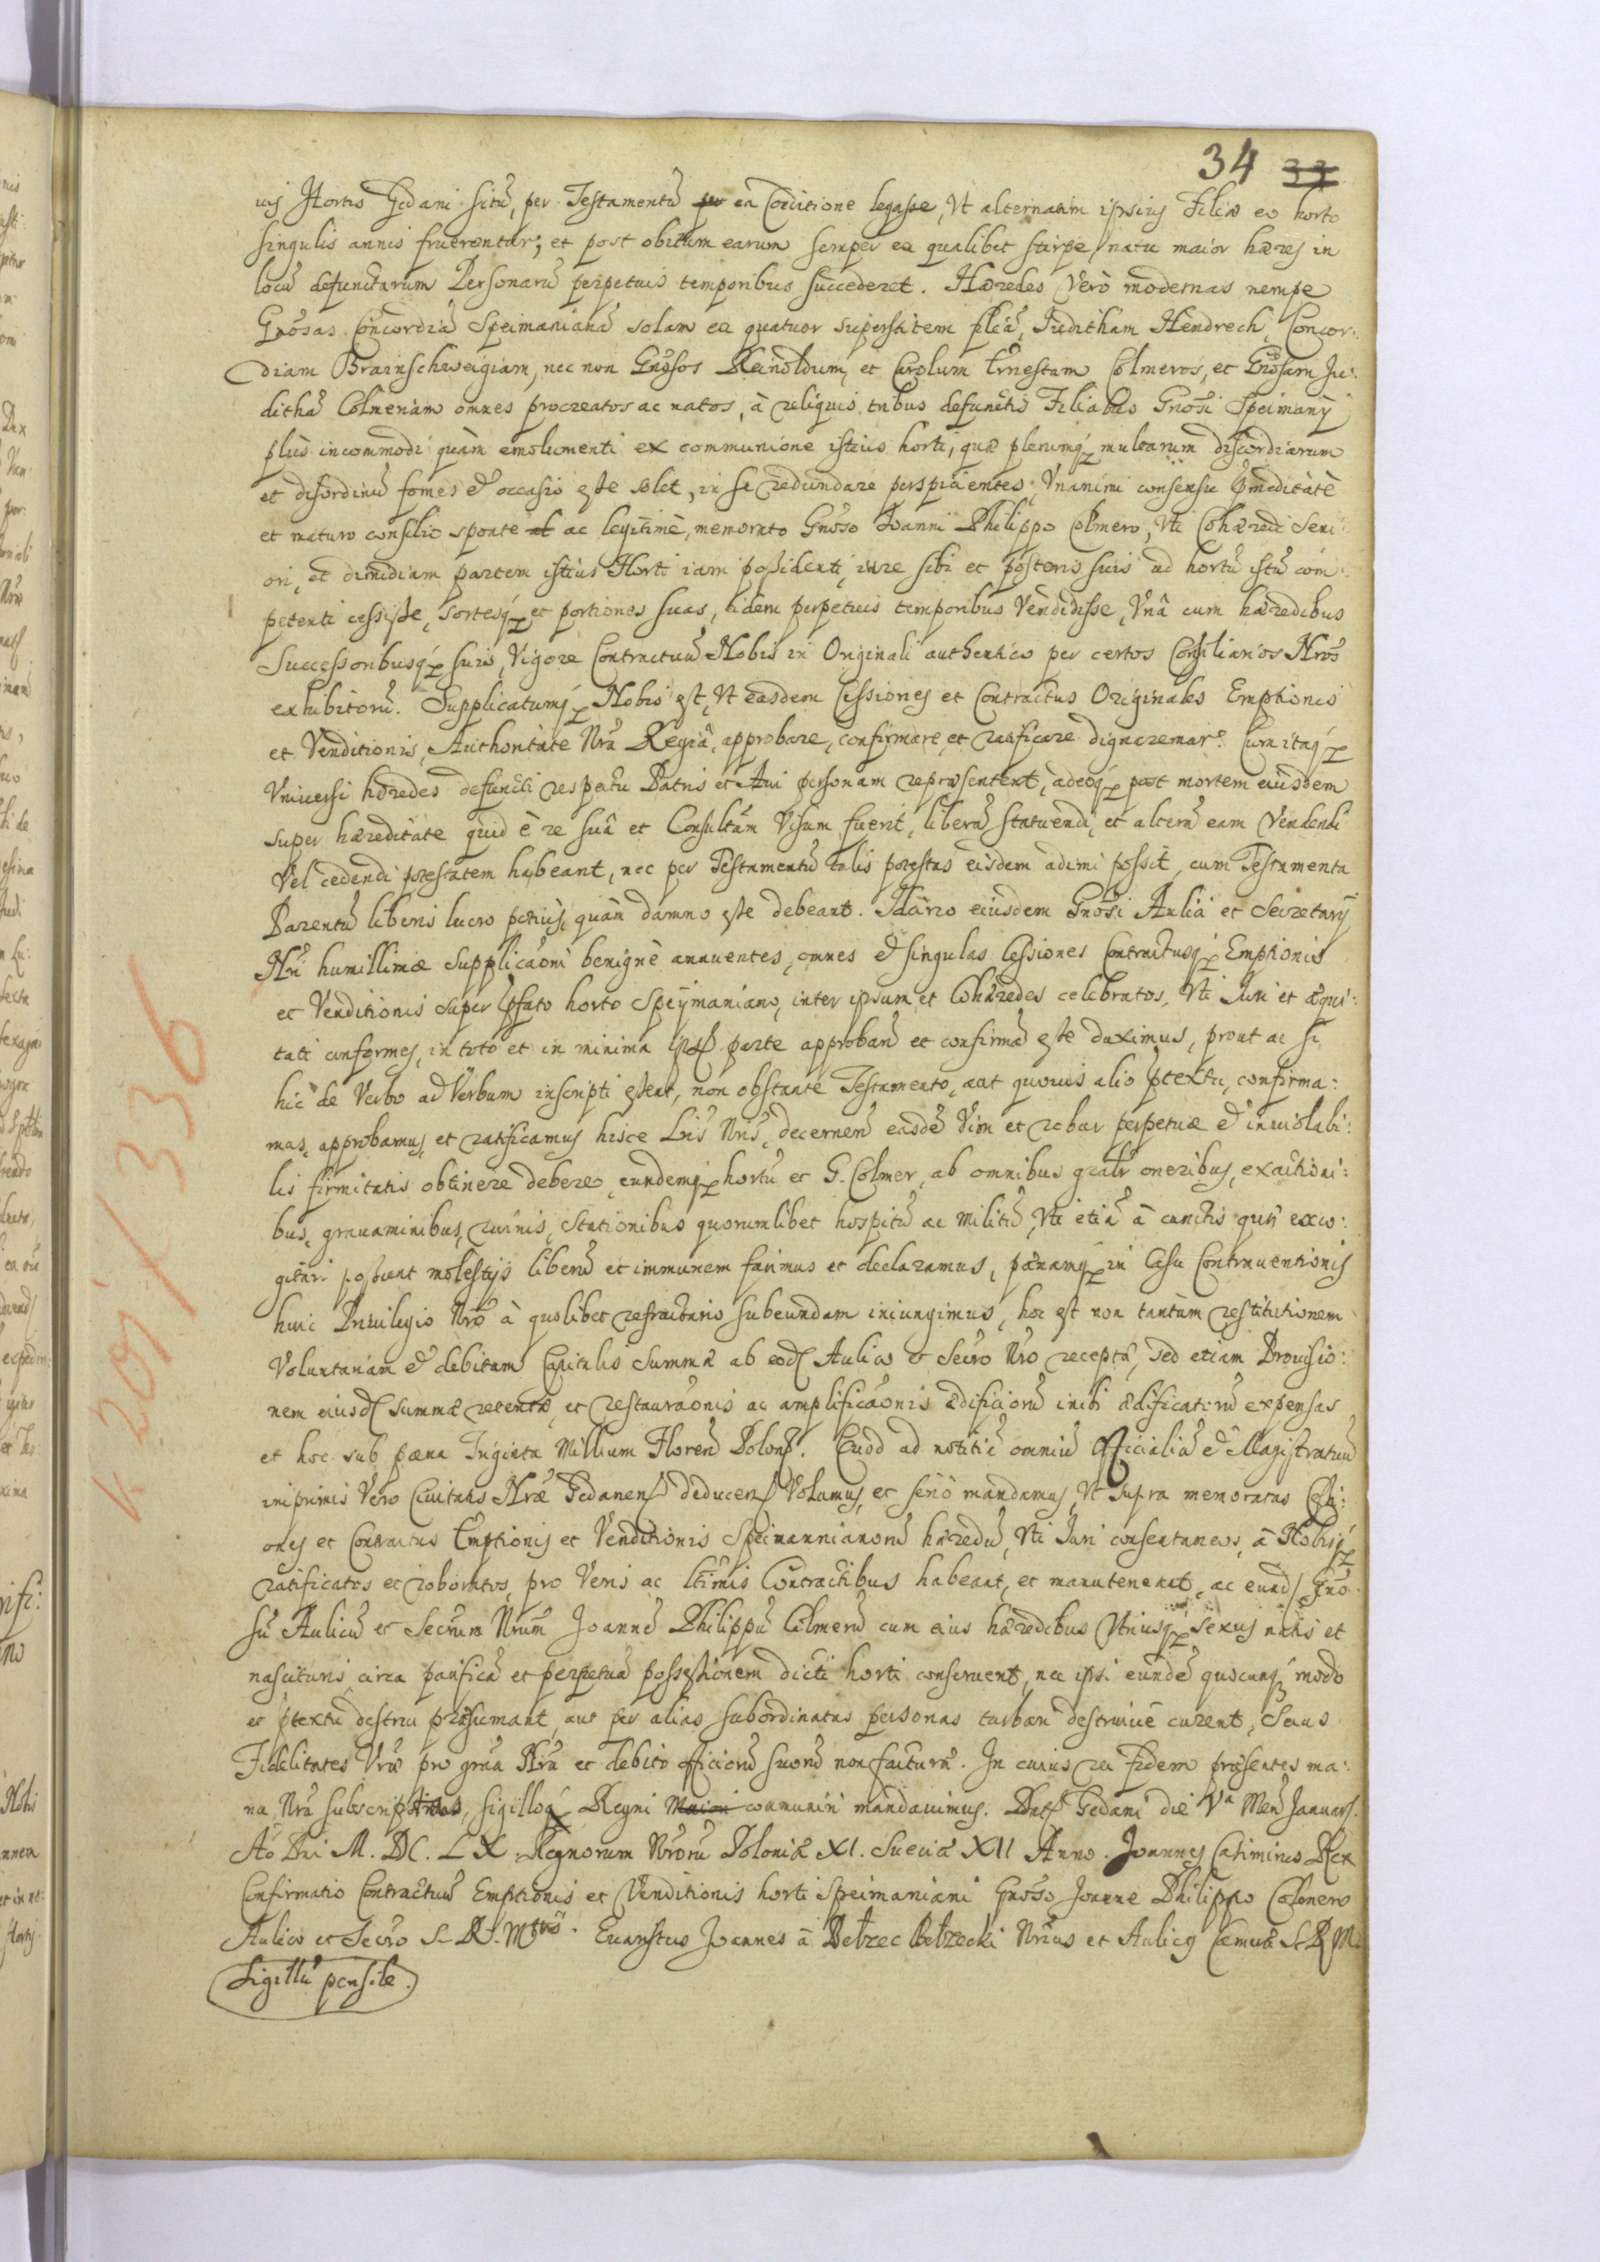 34 33
uis Hortis Gedani sitū, per Testamentū per ea Coñditione legasse, Vt alternatim ipsius Filiæ eo horto
singulis annis fruerentur; et post obitum earum semper ex qualibet stirpe natu maior hæres in
locū defunctarum Personarū perpetuis temporibus succederet. Hæredes Verò modernas nempe
Gnosas Concordiã Speimanianã solam ex quatuor superstitem filiã, Juditham Hendrech, Concor:
diam Brainschweigiam, nec non Gnosos Reinoldum, et Carolum Ernestum Colmeros, et Gnosam Ju:
dithã Colmeriam omnes procreatos ac natos, à reliquis tribus defunctis Filiabus Gnosi Speimanÿ
plùs incommodi quàm emolumenti ex communione istius horti, quæ plerumq; multarum discordiarum
et disordinū fomes & occasio esse solet, in se redundare perspicientes, Vnanimi consensu pmeditatè
et maturo consilio sponte et ac legitimè, memorato Gnoso Joanni Philippo Colmero, Vti Cohæredi Seni
ori, et dimidiam partem istius Horti iam possidenti, iure sibi et posteris suis ad hortū istū com:
petenti cessisse, sortesq; et portiones suas, eidem perpetuis temporibus Vendidisse, Vnâ cum hæredibus
Successoribusq; suis, Vigore Contractuū Nobis in Originali authentico per certos Consiliarios Nros
exhibitorū. Supplicatumq; Nobis est, Vt easdem Cessiones et Contractus Originales Emptionis
et Venditionis, Authoritate Nrã Regiâ, approbare, confirmare et ratificare dignaremur. Cum itaq;
Vniuersi hæredes defuncti respectu Patris et Aui personam repræsentent, adeoq; post mortem eiusdem
super hæreditate quid è re suâ et Consultũm Visum fuerit, liberã statuendi, et alteri eam Vendendi
Vel cedendi potestatem habeant, nec per Testamentū talis potestas eisdem adimi possit, cum Testamenta
Parentū liberis lucro potiùs, quàm damno esse debeant. Idcirco eiusdem Gnosi Aulici et Secretarÿ
Nri humillimæ supplicaõni benignè annuentes, omnes & singulas Cessiones Contractusq; Emptionis
et Venditionis super pfato horto Speÿmaniano, inter ipsum et Cohæredes celebratos, Vti Juri et æqui:
tati conformes, in toto et in minima parte approban̄ et confirman̄ esse duximus, prout ac si
hic de Verbo ad Verbum inscripti essent, non obstante Testamento, aut quouis alio ptextu, confirma:
mus, approbamus, et ratificamus hisce Lris Nris, decernen̄ easdẽ Vim et robur perpetuæ & inuiolabi:
lis firmitatis obtinere debere, eundemq; hortū et G. Colmer, ab omnibus gralr oneribus, exactioni:
bus, grauaminibus, ruinis, stationibus quorumlibet hospitū ac Militū, Vti etiã à cunctis quæ exco:
gitari possunt molestÿs liberū et immunem facimus et declaramus, pœnamq; in Casu Contrauentionis
huic Priuilegio Nro à quolibet refractario subeundam iniungimus, hoc est non tantùm restitutionem
Voluntariam & debitam Capitalis Summæ ab eod Aulico & Secro Nro receptã, sed etiam Prouisio:
nem eiusd summæ retentæ, et restauraõnis ac amplificaõnis ædificiorū inibi ædificatorū expensas
et hoc sub pœna Triginta Millium Floren̄ Polon. Quod ad notitiã omniū Officialiū & Magistratuū
inprimis Vero Ciuitatis Nræ Gedanen deducen Volumus, et seriò mandamus, Vt supra memoratas Cessi:
ones et Contractus Emptionis et Venditionis Speimannianorū hæredū, Vti Juri consentaneos, à Nobisq;
ratificatos et roboratos, pro Veris ac ltimis Contractibus habeant, et manuteneant, ac eund Gno
sū Aulicū et Secrum Nrum Joannē Philippū Colmerū cum eius hæredibus Vtriusq; sexus natis et
nascituris circa pacificã et perpetuã possessionem dicti horti conseruent, nec ipsi eundē quocunq; modo
et ptextu destrui præsumant, aut per alias subordinatas personas turbari destruiuè curent, Secus
Fidelitates Vræ pro grã Nrã et debito officiorū suorū non facturæ. In cuius rei fidem præsentes ma:
nu Nrã subscriptas, sigilloq; Regni Maiori communiri mandauimus. Dat Gedani die Va Men̄ Januar.
Ao Dni M. DC. LX. Regnorum Nrorū Poloniæ XI. Sueciæ XII Anno. Joannes Casimirus Rex
Confirmatio Contractuū Emptionis et Venditionis horti Speimaniani Gnoso Joanne Philippo Colmero
Aulico et Secro S. R. Mtis. Euaristus Joannes à Bełzec Bełzecki Nrius et Aulicq S. R M.
Sigillū pensile.